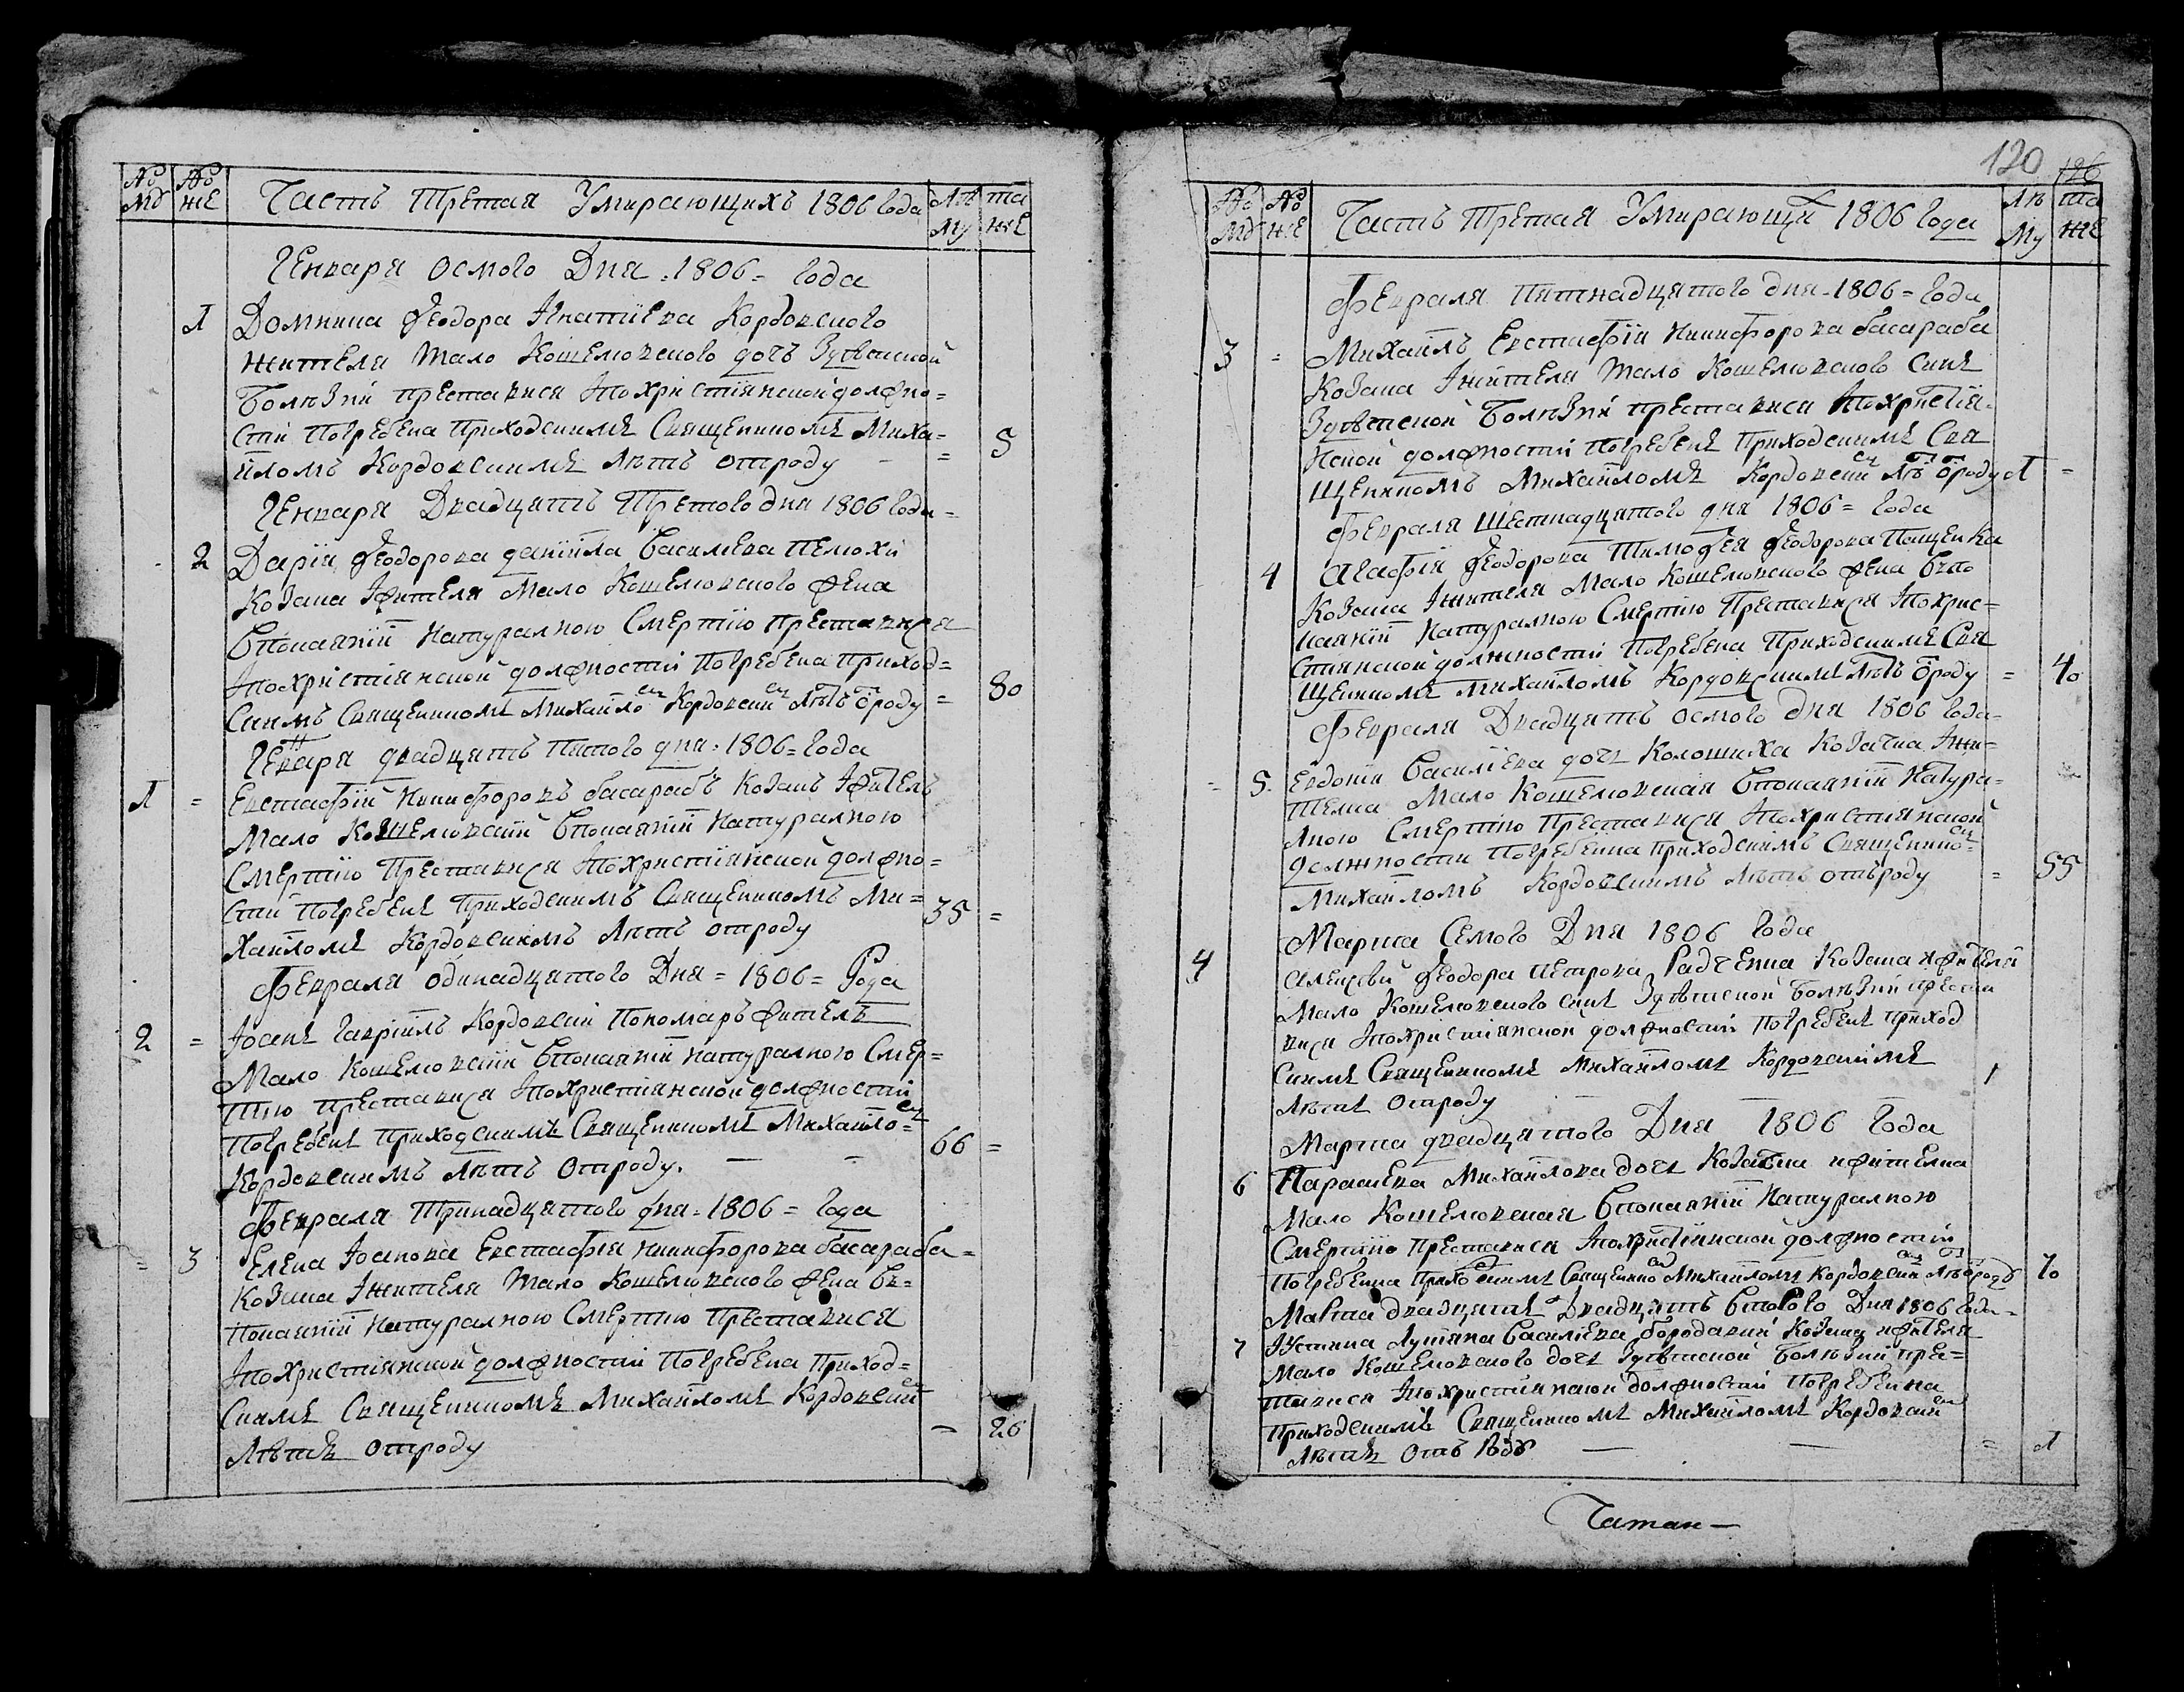 No No Часть Третая Умирающихъ 1806 Года Лѣ та
Му же Му же
Генваря осмого Дня 1806 = Года
1 Домникиа Феодора Игнатіева Кордовского
жителя мало Кошелювского дочь Здѣтской
Болѣзни преставися Похристіянской должно=
сти Погребена Приходскимъ Священникомъ Миха=
йломъ Кордовскимъ Лѣтъ отроду - = 5
Генваря Двадцать Третого дня 1806 Года =
2 Дарія Феодорова даніила Василіева
Козака Ижителя Мало Кошелювского жена
Споканій Натуралною Смертію преставися
Похристіянской должности Погребена приход=
скимъ Священникомъ Михайло Кордовски Лѣтъ ороду = 80
Генваря двадцать пятого дня 1806 = Года
1 = Евстафій Никифоровъ басарабъ Козакъ Іжитель
Мало Кошелювскій Споканій Натуралною
Смертію Преставися Похристіянской должно=
сти Погребенъ Приходскимъ Священникомъ Ми=
хайломъ Кордовскимъ Лѣтъ отроду 35 =
Февраля одинадцятого Дня = 1806 = Года
2 = Іоанъ Гавріилъ Кордовскій Пономаръ житель
Мало Кошелювскій Споканій натуралною Смер=
тію преставися Похристіянской должности
Погребенъ Приходскимъ Священникомъ Михайло=
Кордовскимъ Лѣтъ Отроду. - = 66 =
Февраля Тринадцятого дня 1806 = Года
= 3 Елена Іоанова Евстафія никифорова басараба =
Козака Іжителя мало Кошелювского жена Бѣ=
Поканій Натуралною Смертію Преставися
Похристіянской должности Погребена Приход=
скимъ Священникомъ Михайломъ Кордовски
Лѣтъ отроду - 26
120 126
No No Часть Третая Умирающи 1806 Года Лѣ та
Му же Му же
Февраля Пятнадцятого дня 1806 = Года
3 = Михаилъ Евстафіи Никифорова басараба
Козака Іжителя мало Кошелювского Синъ
Здѣтской Болѣзни преставися Похристія-
нской должности Погребенъ Приходскимъ Свя
щенникомъ Михайломъ Кордовски Лѣ ороду 1 =
Февраля Шестнадцятого дня 1806 = Года
4 Агафія Феодорова Тимофея Феодорова Пащенка
Козака Іжителя Мало Кошелювского жена Спо
каній Натуралною Смертію Преставися Похрис=
стіянской должности Погребена Приходскимъ Свя
щенникомъ Михайломъ Кордовскимъ Лѣтъ ороду = 40
Февраля Двадцать осмого дня 1806 Года =
= 5. Евдокія Василіева дочь Колошиха Козачка Ижи=
телка Мало Кошелювская Споканій Натура=
лною Смертію Преставися Похристіянской
должности Погребенна Приходскимъ Священнико=
Михайломъ Кордовскимъ Лѣтъ отъроду = 55
Марта Семого Дня 1806 Года
4 Алексѣй Феодора Петрова Радченка Козака ижителя
Мало Кошелювского синъ Здѣтской болѣзни престав
вися Похристіянской должности Погребенъ приход
скимъ Священникомъ Михайломъ Кордовскимъ
Лѣтъ отроду - 1
Марта двадцятого Дня 1806 Года
6 Параскева Михайлова дочь Козачка ижителка
Мало Кошелювская Споканій Натуралною
Смертію Преставися Похристіянской должности
Погребенна Прихоскимъ Священико Михайломъ Кордовски Лѣ ороду 70
Марта двадцать Двадцать Второго Дня 1806 Года =
7 Іустина Лукіяна Василіева Бородавки Козака ижителя
Мало Кошелювского дочь Здѣтской Болѣзни пре=
тавися Похристіянской должности Погребенна
Приходскимъ Священникомъ Михайломъ Кордовски
Лѣтъ Отъ Роду - - = 1